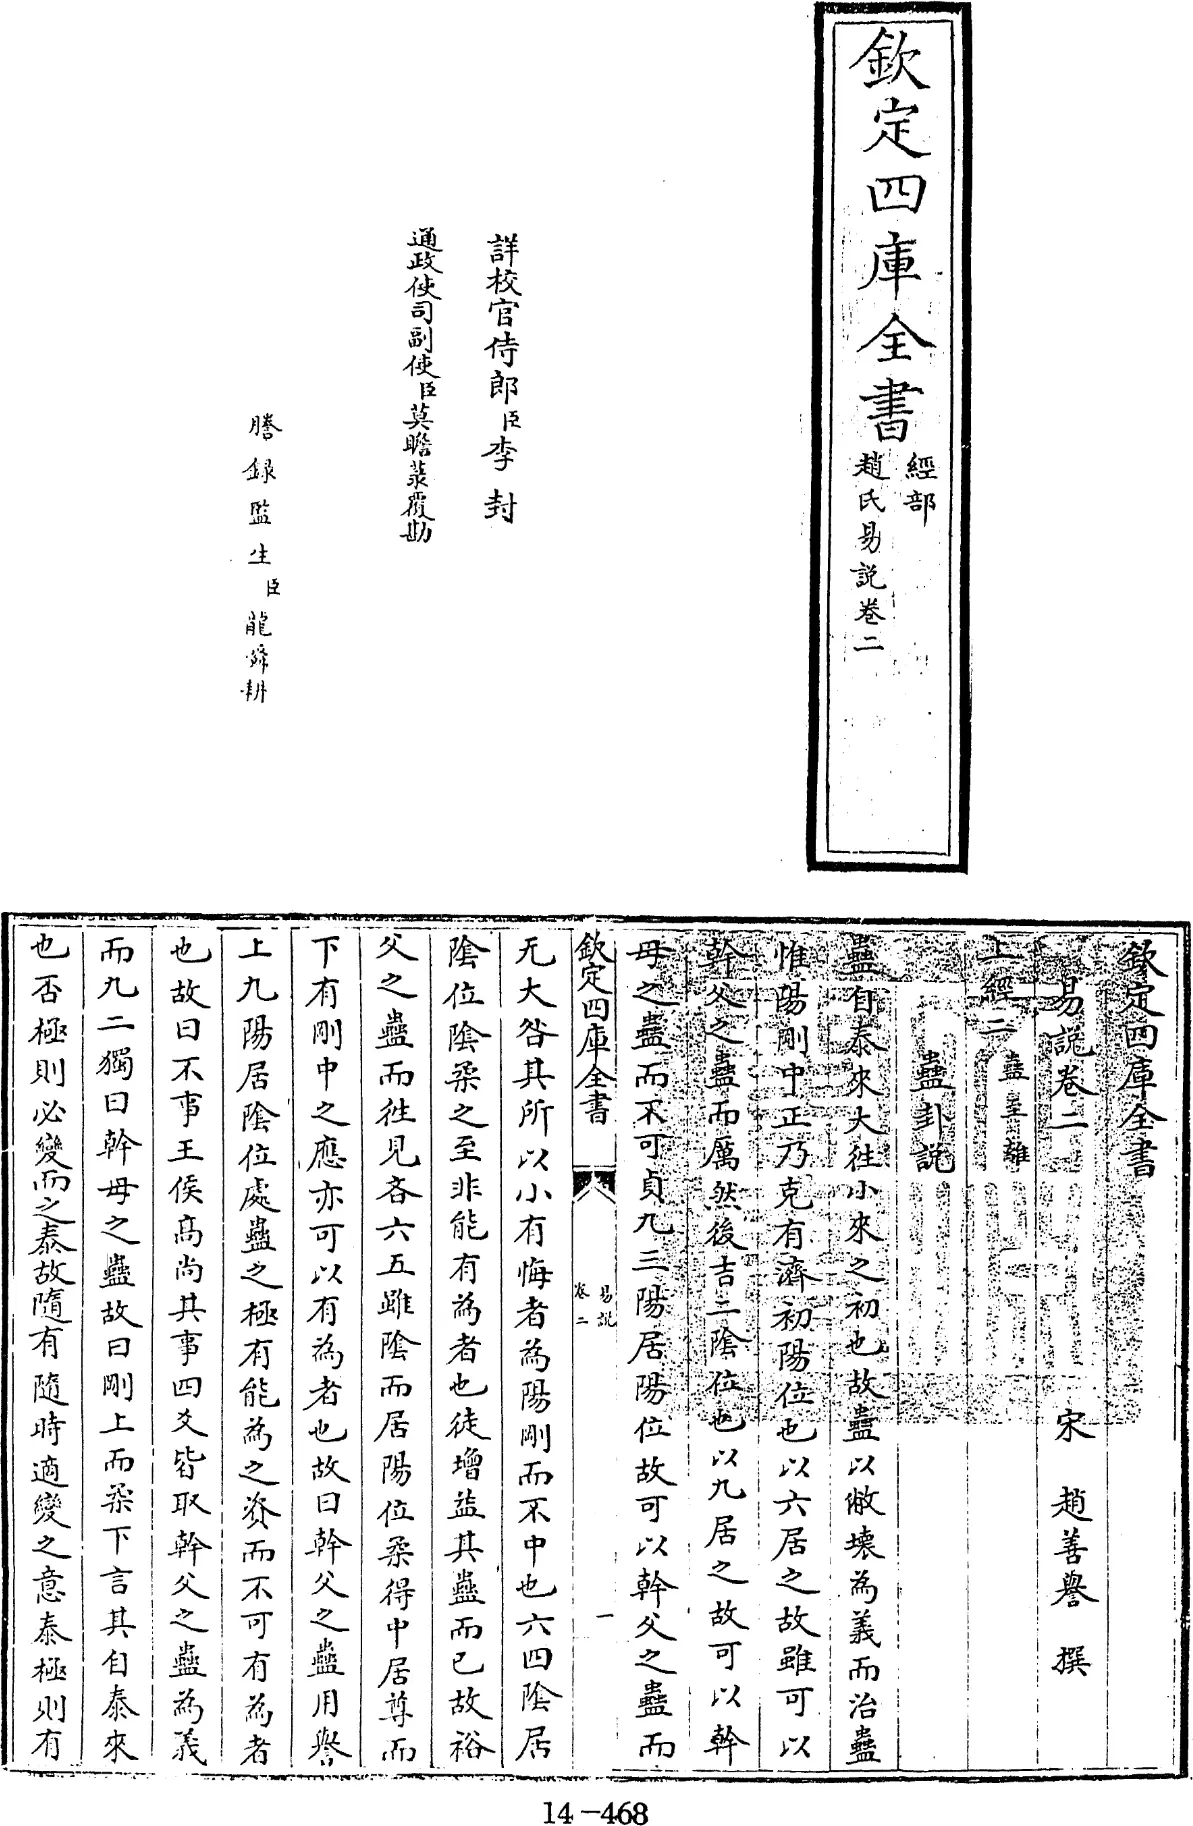 欽定四庫全書
經部
趙氏易說卷二
詳校官侍郎臣李封
通政使司副使臣莫瞻菉覆勘
謄錄監生臣龍舜耕
欽定四庫全書
易說卷二
宋 趙善譽 撰
上經二 蠱至離
蠱卦說
蠱自泰來大往小來之初也故蠱以敝壞為義而治蠱
惟陽剛中正乃克有濟初陽位也以六居之故雖可以
幹父之蠱而厲然後吉二陰位也以九居之故可以幹
母之蠱而不可貞九三陽居陽位故可以幹父之蠱而
欽定四庫全書
易說
卷二
一
无大咎其所以小有悔者為陽剛而不中也六四陰居
陰位陰柔之至非能有為者也徒增益其蠱而已故裕
父之蠱而往見吝六五雖陰而居陽位柔得中居尊而
下有剛中之應亦可以有為者也故曰幹父之蠱用譽
上九陽居陰位處蠱之極有能為之資而不可有為者
也故曰不事王侯高尚其事四爻皆取幹父之蠱為義
而九二獨曰幹母之蠱故曰剛上而柔下言其自泰來
也否極則必變而之泰故隨有隨時適變之意泰極則有
14-468